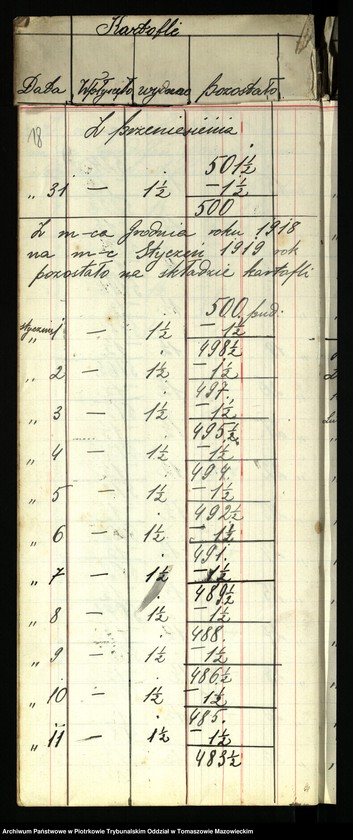 Kartofli
Data Wpłynęło wydano Pozostało
18 Z przeniesienia
501½
„ 31 — 1½ —1½
500
Z m-ca Grudnia roku 1918
na m-c Styczeń 1919 rok
pozostało na składzie kartofli
500 pud.
styczeń 1 — 1½ —1½
498½
„ 2 — 1½ —1½
497.
„ 3 — 1½ —1½
495½
„ 4 — 1½ —1½
494.
„ 5 — 1½ —1½
492½
„ 6 — 1½ —1½
491.
„ 7 — 1½ —1½
489½
„ 8 — 1½ —1½
488.
„ 9 — 1½ —1½
486½
„ 10 — 1½ —1½
485.
„ 11 — 1½ —1½
483½
Archiwum Państwowe w Piotrkowie Trybunalskim Oddział w Tomaszowie Mazowieckim